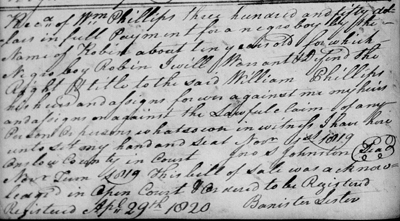 Recd of Wm Phillips three hundred and fifty dol-
lars in full Payment for a negro boy by the
Name of Robin about ten years old for which
Negro boy Robin I will Warrant & Defend the
Right & title to the said William Phillips
his heirs and assigns forever against me my heirs
and assigns or against the Lawful Claim of any
Person or Persons whatsoever in witness I have here
unto set my hand and seal Novr 1819
Onslow County in Court Jno Johnston Seal
Novr Term 1819 This bill of Sale was acknow-
ledged in Open Court & Ordered to be Registerd
Registerd Apl 29th 1820 Banister Lester